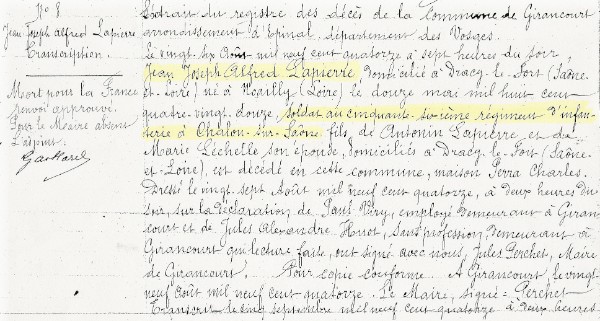 N° 8
Jean Joseph Alfred Lapierre
Transcription.
Mort pour la France
renvoi approuvé
Pour le Maire absent
L'adjoint.
Extrait du registre des décès de la Commune de Girancourt
arrondissement d'Epinal, département des Vosges.
Le vingt six Août mil neuf cent quatorze à sept heures du soir
Jean Joseph Alfred Lapierre, domicilié à Dracy-le-Fort (Saône-
et-Loire) né à Noailly (Loire) le douze mars mil huit cent
quatre-vingt-douze, soldat au cinquante-sixième régiment d'infan-
terie à Chalon-sur-Saône fils de Antonin Lapierre et de
Marie Léchelle son épouse, domiciliés à Dracy-le-Fort (Saône-
et-Loire), est décédé en cette commune, maison Perra Charles.
Dressé le vingt-sept Août mil neuf cent quatorze, à deux heures du
soir, sur la déclaration de Paul Viry, employé demeurant à Giran-
court et de Jules Alexandre Honot, sans profession, demeurant à
Girancourt qui lecture faite, ont signé avec nous, Jules Perchet, Maire
de Girancourt. Pour copie conforme. A Girancourt, le vingt-
neuf Août mil neuf cent quatorze. Le Maire, signé = Perchet
Transcrit le cinq septembre mil neuf cent quatorze à deux heures